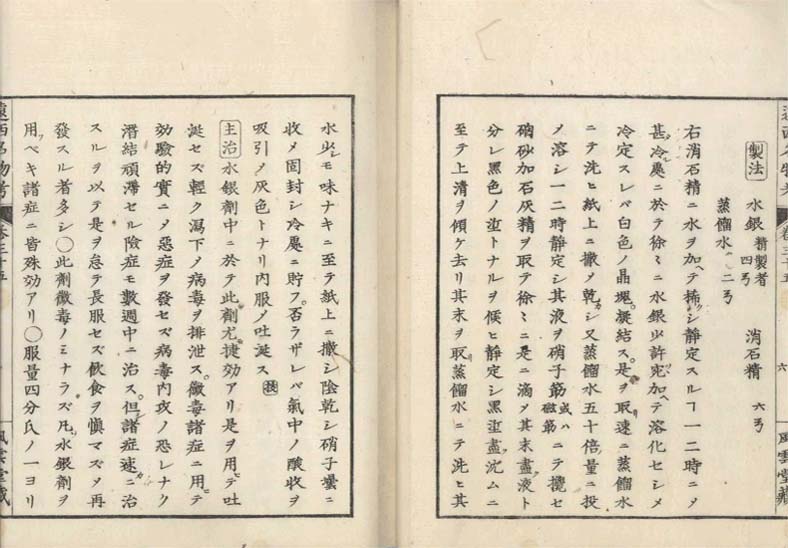 遠西名物考 卷三十五 六 風雲堂藏
製法 水銀 精製者四弓 消石精 六弓
蒸餾水 二弓
右消石精ニ水ヲ加ヘテ稀シ靜定スルヿ一二時ニメ
甚冷處ニ於テ徐〻ニ水銀少許宛加ヘテ溶化セシメ
冷定スレバ白色ノ晶塊凝結ス。是ヲ取速ニ蒸餾水
ニテ洗ヒ紙上ニ撒メ乾シ又蒸餾水五十倍量ニ投
メ溶シ一二時靜定シ其液ヲ硝子筯 或ハ磁筯 ニテ攪セ
硇砂加石灰精ヲ取テ徐〻ニ是ニ滴メ其末盡液ト
分レ黑色ノ埿トナルヲ候ヒ靜定シ黑埿盡沈ムニ
至テ上清ヲ傾ケ去リ其末ヲ取蒸餾水ニテ洗ヒ其
水少シモ味ナキニ至テ紙上ニ撒シ陰乾シ硝子壜ニ
收メ固封シ冷處ニ貯フ。否ラザレバ氣中ノ酸收ヲ
吸引メ灰色トナリ内服メ吐涎ス
主治 水銀劑中ニ於テ此劑尤捷効アリ是ヲ用ヒテ吐
涎セズ輕ク瀉下メ病毒ヲ排泄ス。黴毒諸症ニ用テ
効驗的實ニメ惡症ヲ發セズ病毒内攻ノ恐レナク
潛結頑滯セル險症モ數週中ニ治ス。但諸症速ニ治
スルヲ以テ是ヲ怠テ長服セズ飲食ヲ愼マズメ再
發スル者多シ〇此劑黴毒ノミナラズ凡水銀劑ヲ
用フベキ諸症ニ皆殊効アリ〇服量四分氏ノ一ヨリ
遠西名物考 卷三十五 風雲堂藏